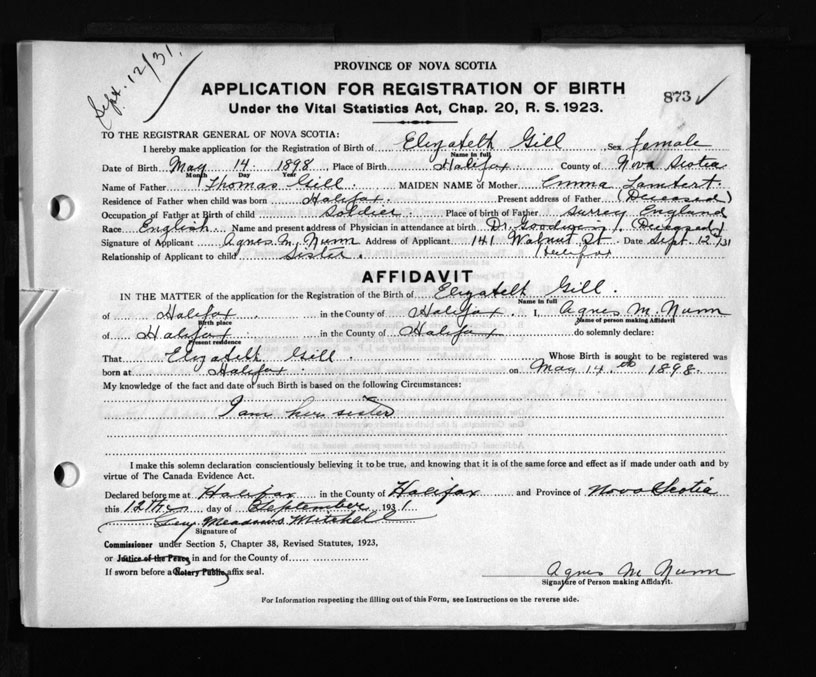 Sept. 12/31.
PROVINCE OF NOVA SCOTIA
APPLICATION FOR REGISTRATION OF BIRTH
873 ✓
Under the Vital Statistics Act, Chap. 20, R. S. 1923.
TO THE REGISTRAR GENERAL OF NOVA SCOTIA:
I hereby make application for the Registration of Birth of Elizabeth Gill Sex female
Name in full
Date of Birth May 14 1898 Place of Birth Halifax County of Nova Scotia
Month Day Year
Name of Father Thomas Gill. MAIDEN NAME of Mother Emma Lambert.
Residence of Father when child was born Halifax Present address of Father (Deceased)
Occupation of Father at Birth of child Soldier. Place of birth of Father Surrey England
Race English Name and present address of Physician in attendance at birth Dr. Goodwin (Deceased)
Signature of Applicant Agnes M. Nunn Address of Applicant 141 Walnut St. Date Sept. 12th/31
Relationship of Applicant to child Sister. Halifax
AFFIDAVIT
IN THE MATTER of the application for the Registration of the Birth of Elizabeth Gill.
Name in full
of Halifax in the County of Halifax. I, Agnes M. Nunn
Birth place Name of person making Affidavit
of Halifax in the County of Halifax do solemnly declare:
Present residence
That Elizabeth Gill. Whose Birth is sought to be registered was
born at Halifax on May 14th 1898.
My knowledge of the fact and date of such Birth is based on the following Circumstances:
I am her sister
I make this solemn declaration conscientiously believing it to be true, and knowing that it is of the same force and effect as if made under oath and by
virtue of The Canada Evidence Act.
Declared before me at Halifax in the County of Halifax and Province of Nova Scotia
this 12th day of September 1931
Meadows Mitchell
Signature of
Commissioner under Section 5, Chapter 38, Revised Statutes, 1923,
or Justice of the Peace in and for the County of
If sworn before a Notary Public affix seal.
Agnes M Nunn
Signature of Person making Affidavit.
For Information respecting the filling out of this Form, see Instructions on the reverse side.